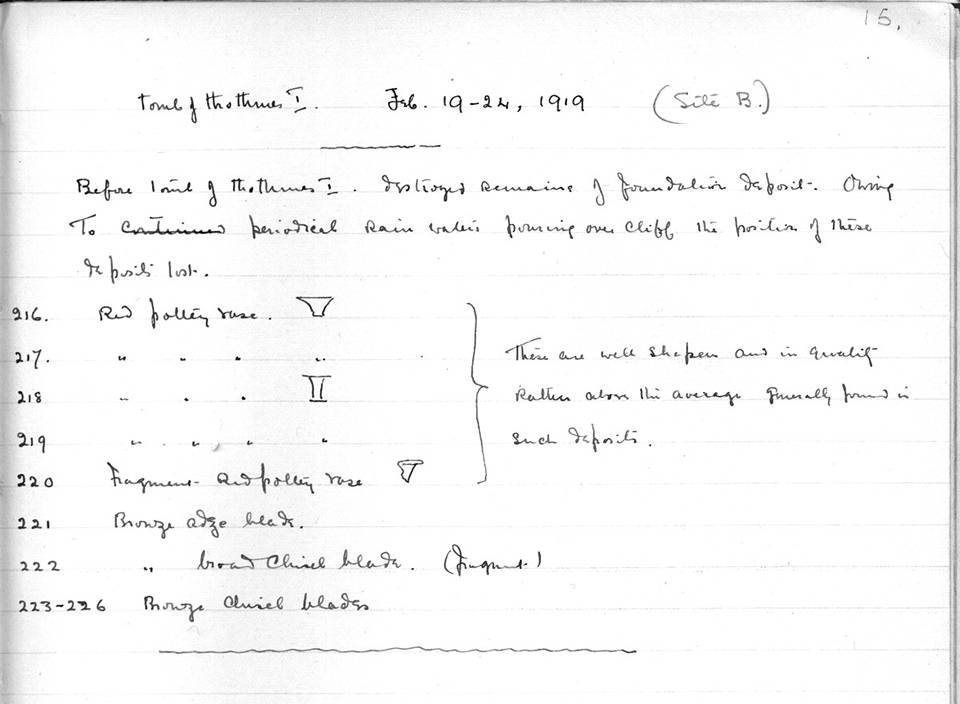 15.
Tomb of Thothmes I. Feb. 19-24, 1919 (Site B.)
Before Tomb of Thothmes I. destroyed remains of foundation deposit. Owing
To continued periodical rain waters pouring over cliff the position of these
deposits lost.
216. Red pottery vase.
217. " " " "
218 " " "
219 " " " "
220 Fragment Red pottery vase
These are well shapen and in quality
rather above the average generally found in
such deposits.
221 Bronze adze blade.
222 " broad chisel blade. (fragmt.)
223-226 Bronze chisel blades